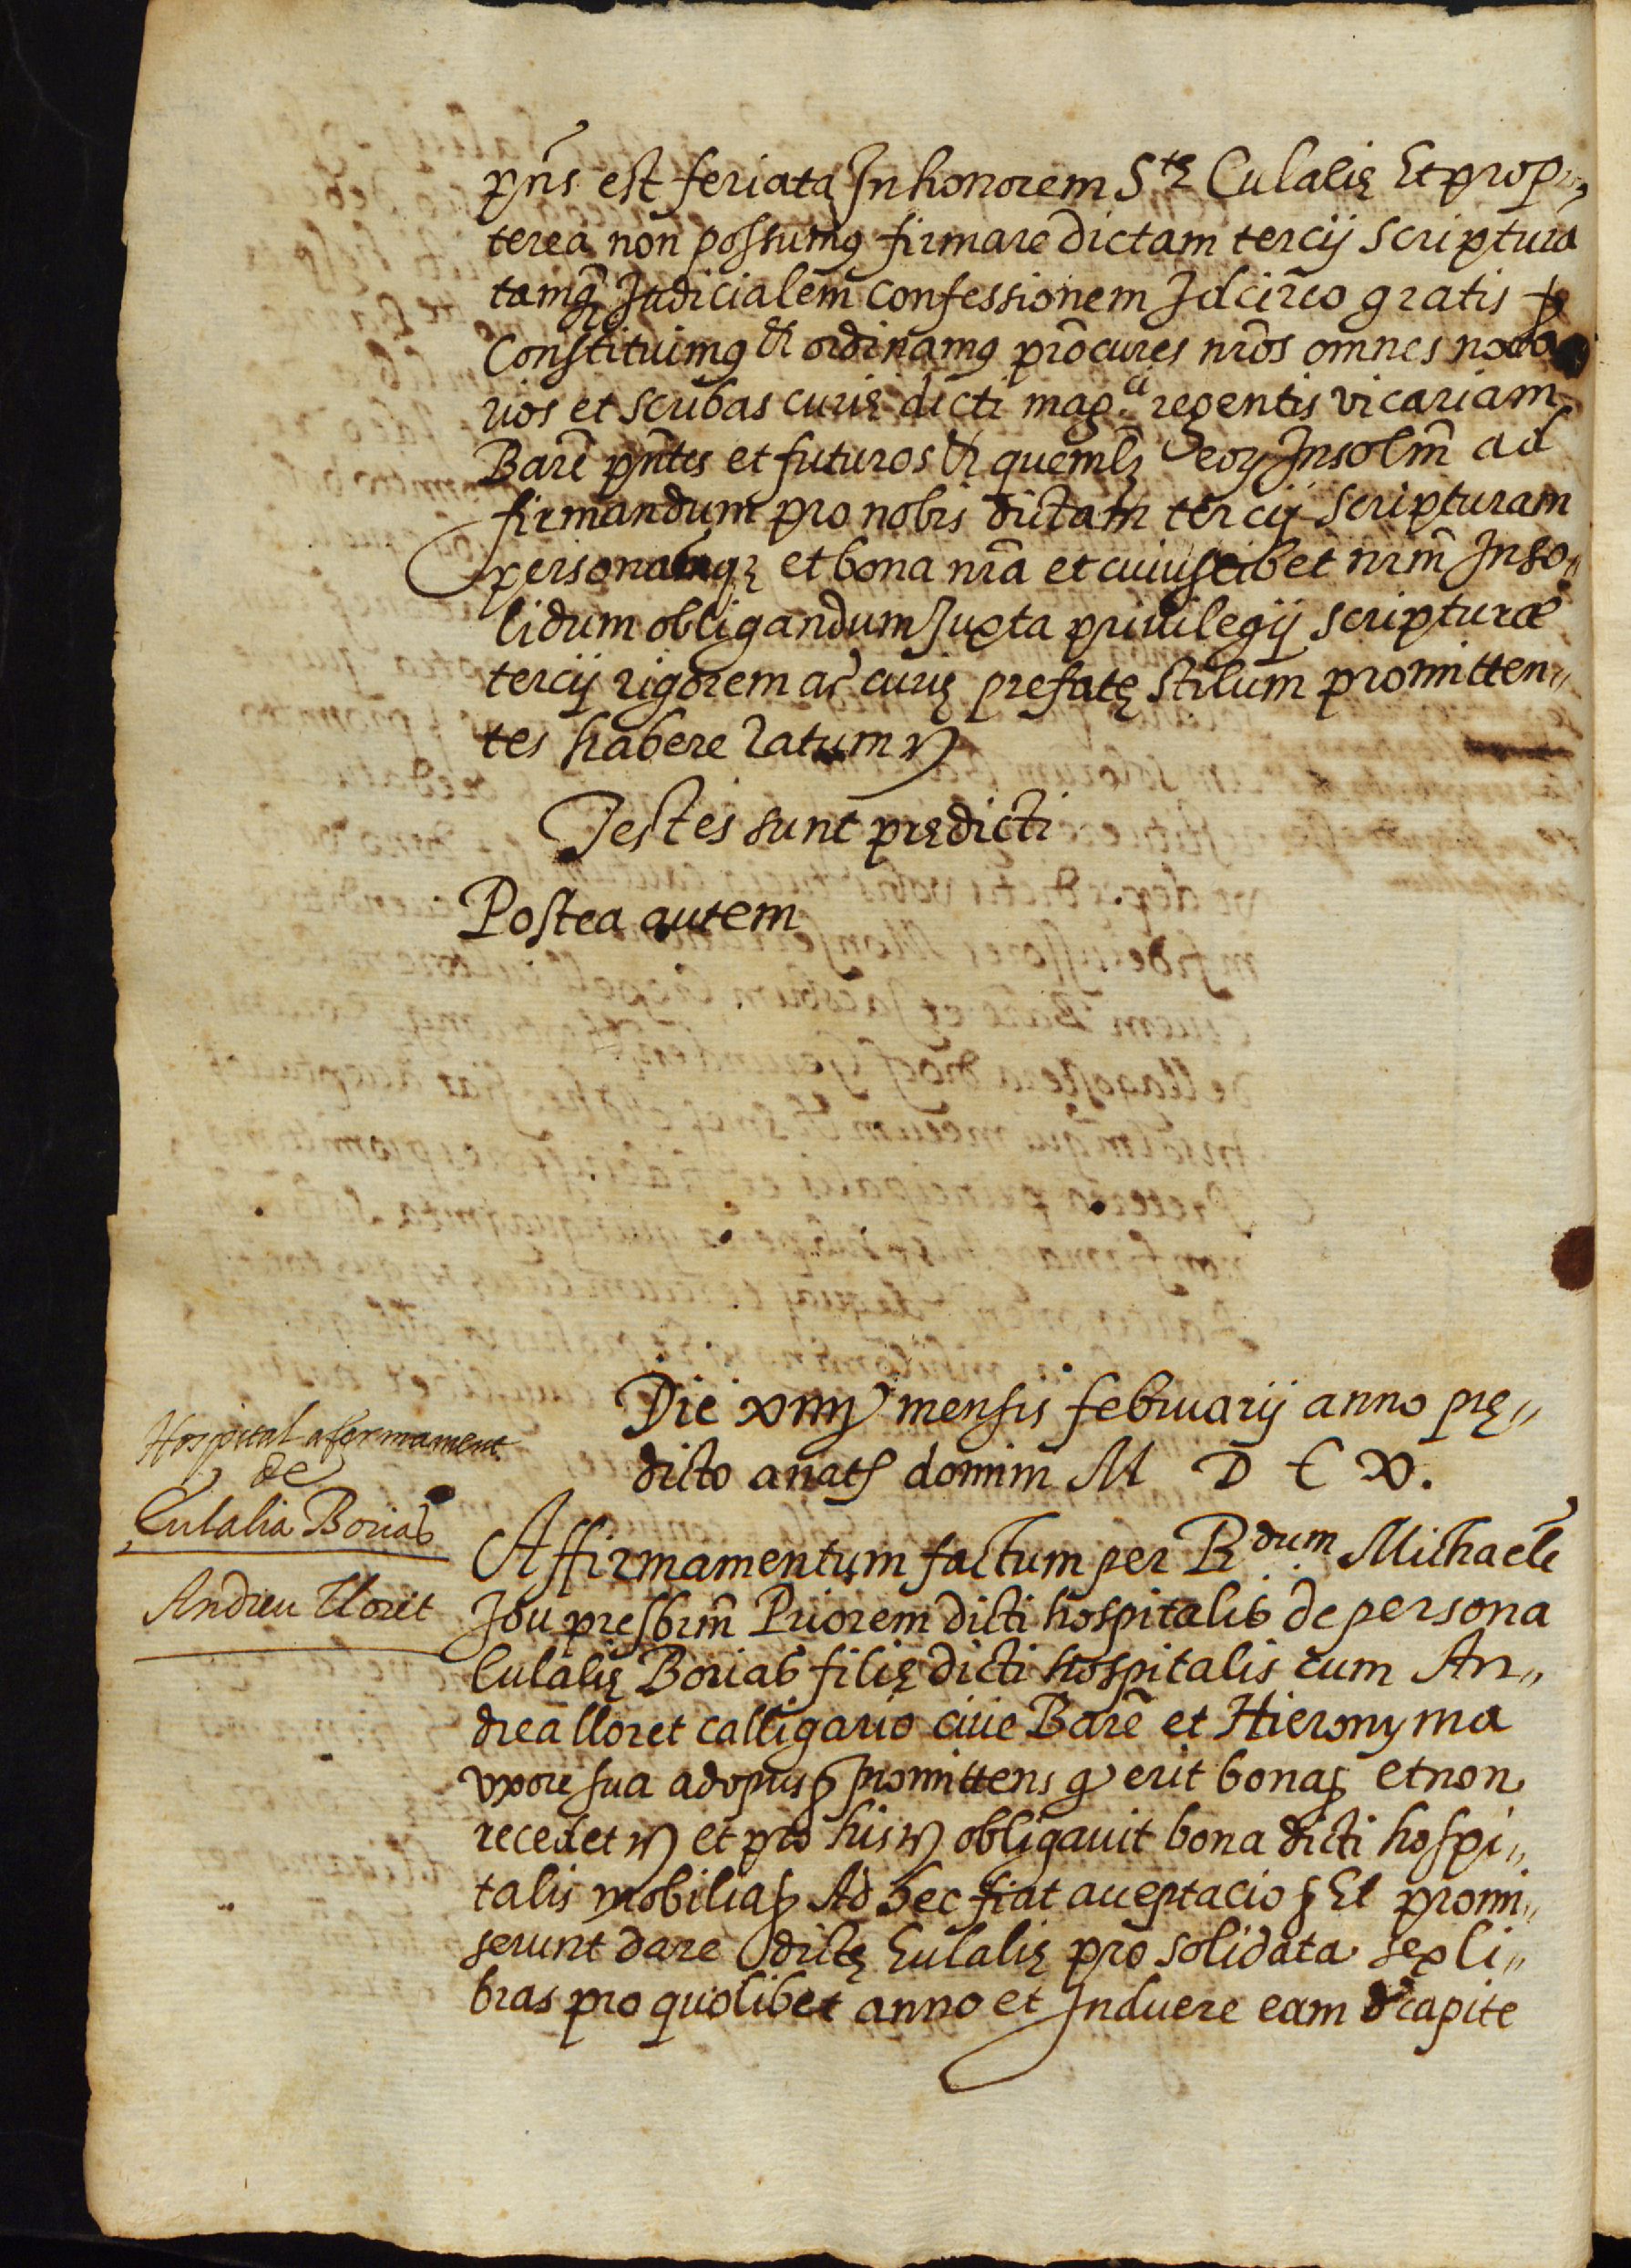 pñs est feriata In honorem Stę Eulalię Et prop„
terea non possumꝰ firmare dictam tercij scripturã
tamq̃ Judicialem confessionem Idcirco gratis
Constituimꝰ & ordinamꝰ prõcures nrõs omnes nota
rios et scribas curię dicti mag.ci regentis vicariam
Barẽ pñtes et futuros & quemlꝫ eoꝝ Insolm̃ ad
firmandum pro nobis dictam tercij scripturam
personasqꝫ et bona nrã et cuiuslibet nrm̃ Inso„
lidum obligandum Juxta privilegij scripturæ
tercij rigorem ac curię prefatę stilum promitten„
tes habere ratum
Testes sunt prędicti
Postea autem
Die xiiij mensis februarij anno prę„
dicto a natẽ domini M D C X.
Hospital afermament
de
Eulalia Borias
Andreu lloret
Affirmamentum factum per Rdum Michaelẽ
Jou presbrm̃ Priorem dicti hospitalis de persona
Eulalię Borias filię dicti hospitalis cum An„
drea lloret calligario ciue Barẽ et Hieronyma
vxore sua ad opus promittens qͩ erit bona et non
recedet et pro his obligauit bona dicti hospi„
talis mobilia Ad hec fiat acceptacio Et promi„
serunt dare dictę Eulalię pro solidata sex li„
bras pro quolibet anno et Induere eam de capite